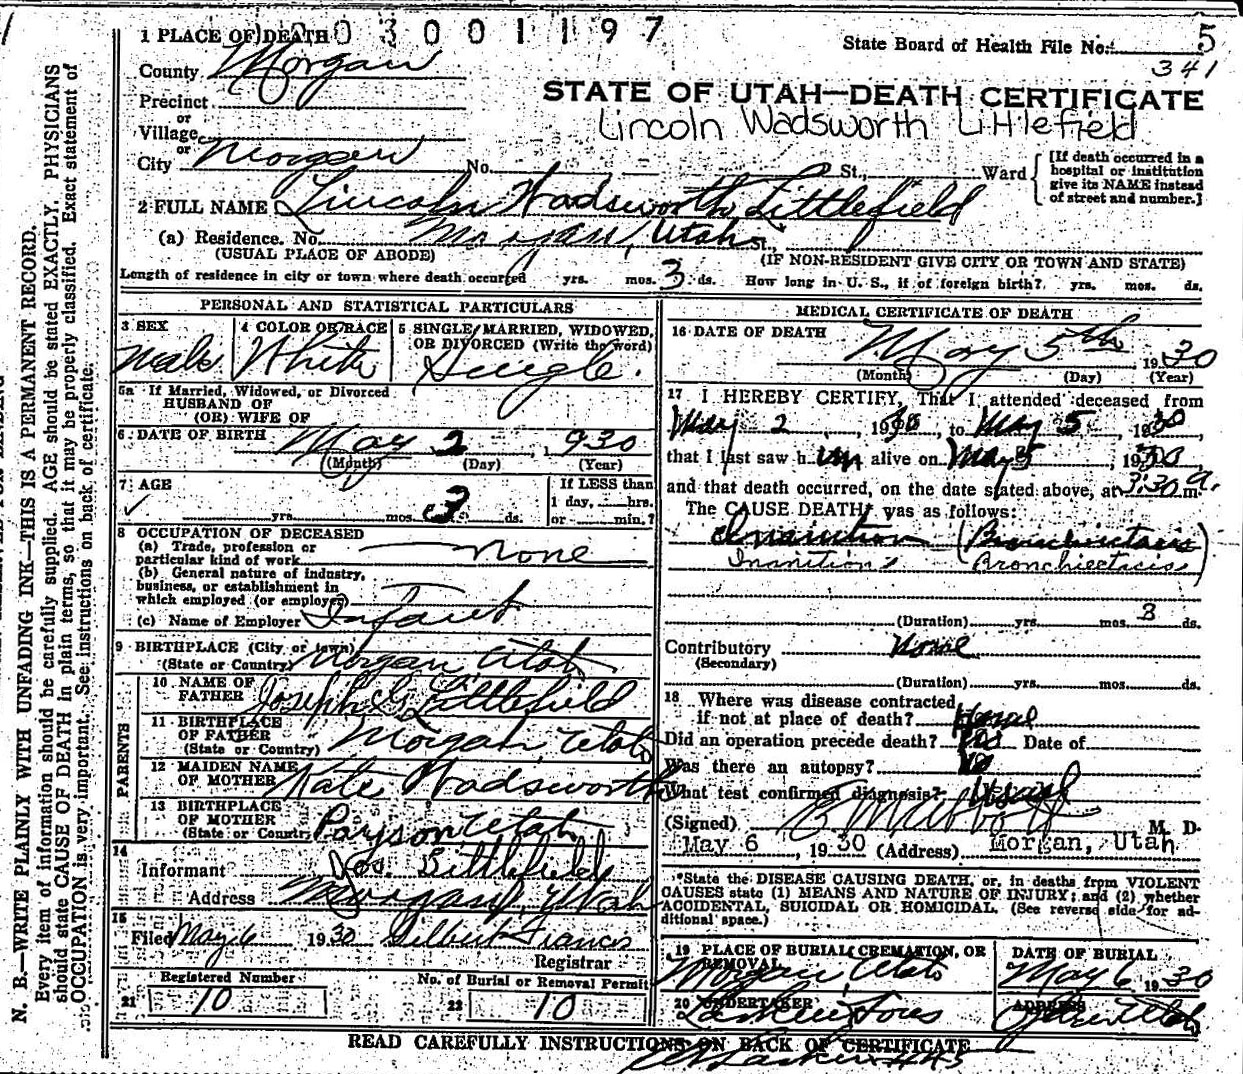 1 PLACE OF DEATH 0 0 3 0 0 1 1 9 7
State Board of Health File No. 5
341
County Morgan
Precinct
or
Village
or
City Morgan No. St., Ward
STATE OF UTAH—DEATH CERTIFICATE
Lincoln Wadsworth Littlefield
[If death occurred in a
hospital or institution
give its NAME instead
of street and number.]
2 FULL NAME Lincoln Wadsworth Littlefield
(a) Residence. No. Morgan, Utah St.,
(USUAL PLACE OF ABODE) (IF NON-RESIDENT GIVE CITY OR TOWN AND STATE)
Length of residence in city or town where death occurred yrs. mos. 3 ds. How long in U. S., if of foreign birth? yrs. mos. ds.
PERSONAL AND STATISTICAL PARTICULARS
3 SEX 4 COLOR OR RACE 5 SINGLE, MARRIED, WIDOWED,
OR DIVORCED (Write the word)
Male White Single.
5a If Married, Widowed, or Divorced
HUSBAND OF
(OR) WIFE OF
6 DATE OF BIRTH May 2, 1930
(Month) (Day) (Year)
7 AGE If LESS than
1 day, hrs.
yrs. mos. 3 ds. or min.?
8 OCCUPATION OF DECEASED
(a) Trade, profession or
particular kind of work None
(b) General nature of industry,
business, or establishment in
which employed (or employer)
(c) Name of Employer Infant
9 BIRTHPLACE (City or town)
(State or Country) Morgan Utah
PARENTS
10 NAME OF
FATHER Joseph G. Littlefield
11 BIRTHPLACE
OF FATHER
(State or Country) Morgan Utah
12 MAIDEN NAME
OF MOTHER Kate Wadsworth
13 BIRTHPLACE
OF MOTHER
(State or Country) Payson Utah
14
Informant Jos. Littlefield
Address Morgan, Utah
15
Filed May 6 1930 Gilbert Francis
Registrar
Registered Number No. of Burial or Removal Permit
21 10 22 10
MEDICAL CERTIFICATE OF DEATH
16 DATE OF DEATH May 5th 1930
(Month) (Day) (Year)
17 I HEREBY CERTIFY, That I attended deceased from
May 2, 1930, to May 5, 1930
that I last saw him alive on May 5, 1930
and that death occurred, on the date stated above, at 3:30 a.m.
The CAUSE DEATH was as follows:
Inanition (Bronchiectasis)
Inanition Bronchiectasis
(Duration) yrs. mos. 3 ds.
Contributory None
(Secondary)
(Duration) yrs. mos. ds.
18 Where was disease contracted
if not at place of death?
Did an operation precede death? No Date of
Was there an autopsy? No
What test confirmed diagnosis?
(Signed) M. D.
May 6, 1930 (Address) Morgan, Utah
*State the DISEASE CAUSING DEATH, or, in deaths from VIOLENT
CAUSES state (1) MEANS AND NATURE OF INJURY; and (2) whether
ACCIDENTAL, SUICIDAL OR HOMICIDAL. (See reverse side for ad-
ditional space.)
19 PLACE OF BURIAL, CREMATION, OR
REMOVAL DATE OF BURIAL
Morgan Utah May 6 1930
20 UNDERTAKER ADDRESS
READ CAREFULLY INSTRUCTIONS ON BACK OF CERTIFICATE
445
N. B.—WRITE PLAINLY WITH UNFADING INK—THIS IS A PERMANENT RECORD.
Every item of information should be carefully supplied. AGE should be stated EXACTLY. PHYSICIANS
should state CAUSE OF DEATH in plain terms, so that it may be properly classified. Exact statement of
OCCUPATION is very important. See instructions on back of certificate.